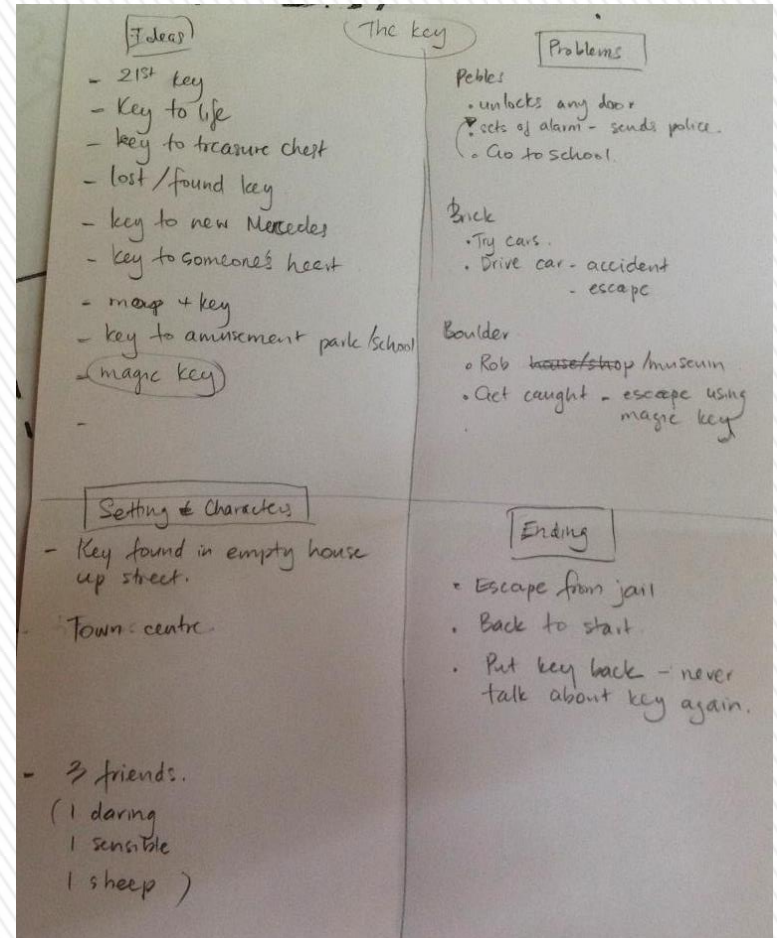 The key
Ideas
- 21st key
- Key to life
- key to treasure chest
- lost/found key
- key to new Mercedes
- key to someone's heart
- map + key
- key to amusement park/school
- magic key
-
Problems
Pebles
• unlocks any door
• sets of alarm - sends police.
• Go to school.
Brick
• Try cars.
• Drive car - accident
- escape
Boulder
• Rob house/shop/museum
• Get caught - escape using
magic key
Setting & Characters
- Key found in empty house
up street.
Town centre.
- 3 friends.
(1 daring
1 sensible
1 sheep)
Ending
• Escape from jail
• Back to start
• Put key back - never
talk about key again.